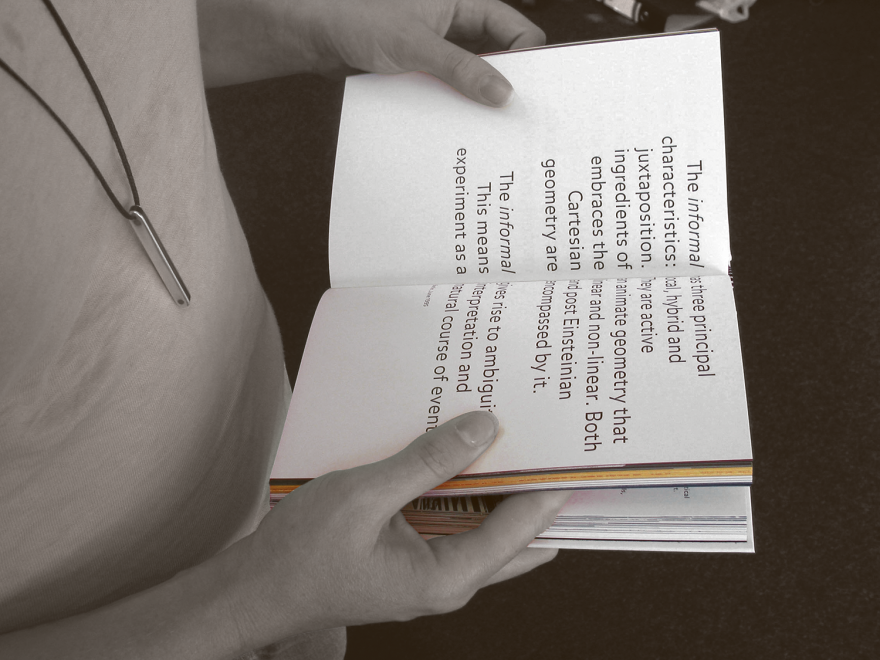 The informal has three principal
characteristics: local, hybrid and
juxtaposition. They are active
ingredients of an animate geometry that
embraces the linear and non-linear. Both
Cartesian and post Einsteinian
geometry are encompassed by it.
The informal gives rise to ambigui
This means interpretation and
experiment as a natural course of event